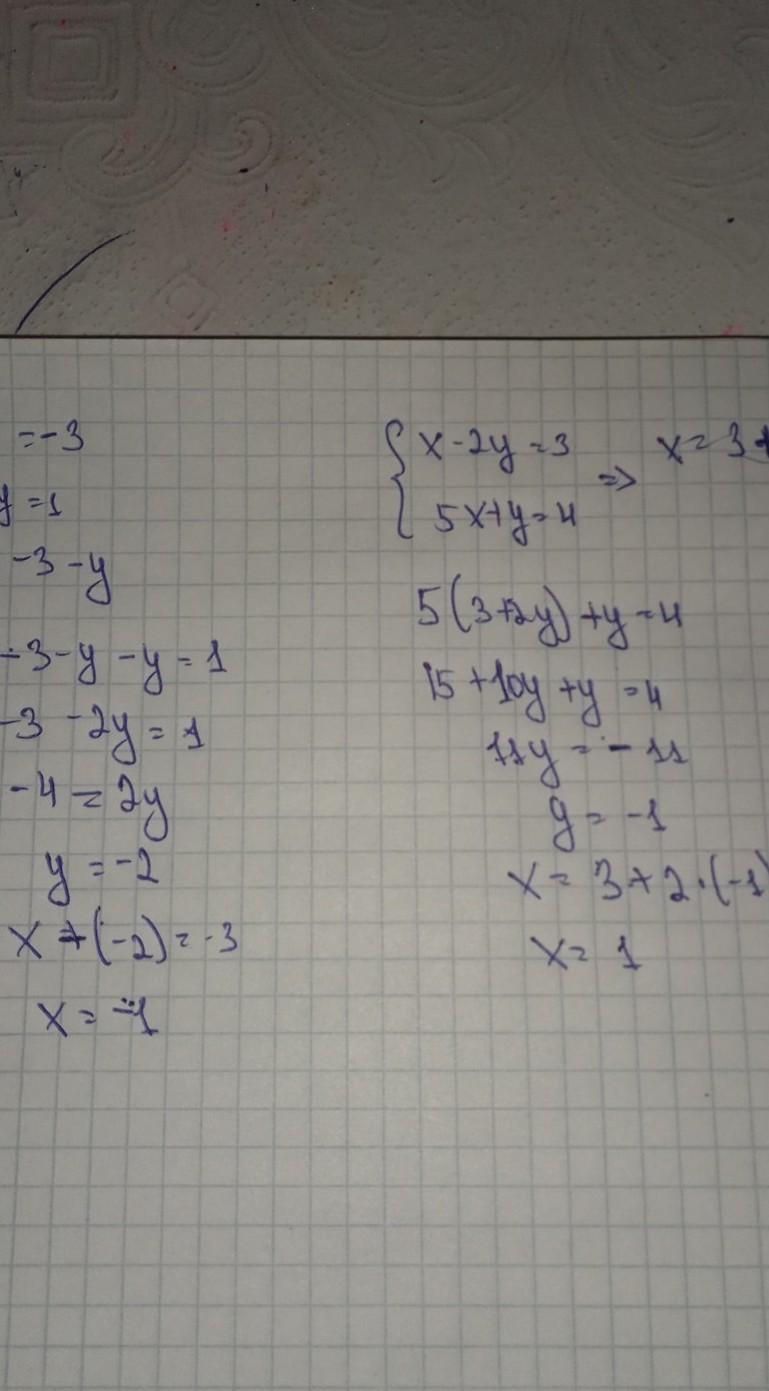 =-3
y=1
-3-y
-3-y-y=1
-3-2y=1
-4=2y
y=-2
x+(-2)=-3
x=-1
{ x-2y=3 => x=3+
5x+y=4
5(3+2y)+y=4
15+10y+y=4
11y=-11
y=-1
x=3+2·(-1)
x=1